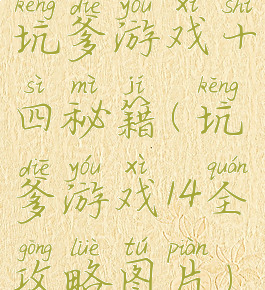 kēng diē yóu xì shí
坑爹游戏十
sì mì jí kēng
四秘籍(坑
diē yóu xì quán
爹游戏14全
gōng lüè tú piàn
攻略图片)